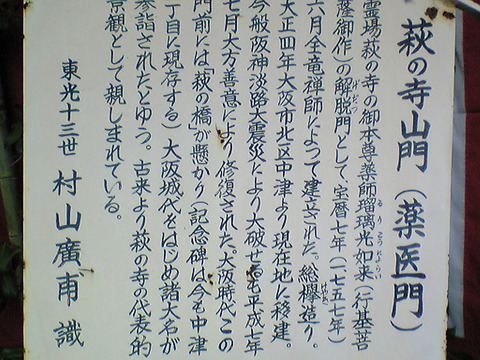 萩の寺山門(薬医門)
霊場萩の寺の御本尊薬師瑠璃光如来(行基菩
薩御作)の解脱門として、宝暦七年(一、七五七年)
六月全竜禅師によって建立された。総欅造り。
大正四年大阪市北区中津より現在地に移建。
今般阪神淡路大震災により大破せるも平成七年
七月大方善意により修復された。大阪時代この
門前には「萩の橋」が懸かり(記念碑は今も中津
丁目に現存する)大阪城代をはじめ諸大名が
参詣されたとゆう。古来より萩の寺の代表的
景観として親しまれている。
東光十三世 村山廣甫 識